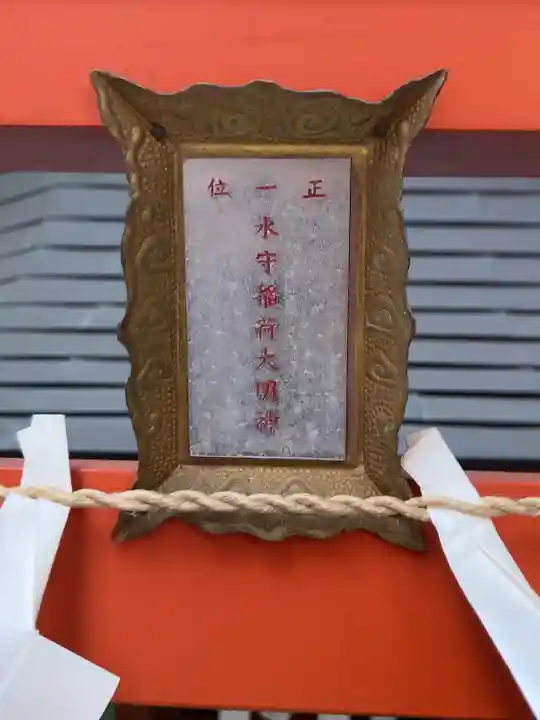 正一位
水守稲荷大明神